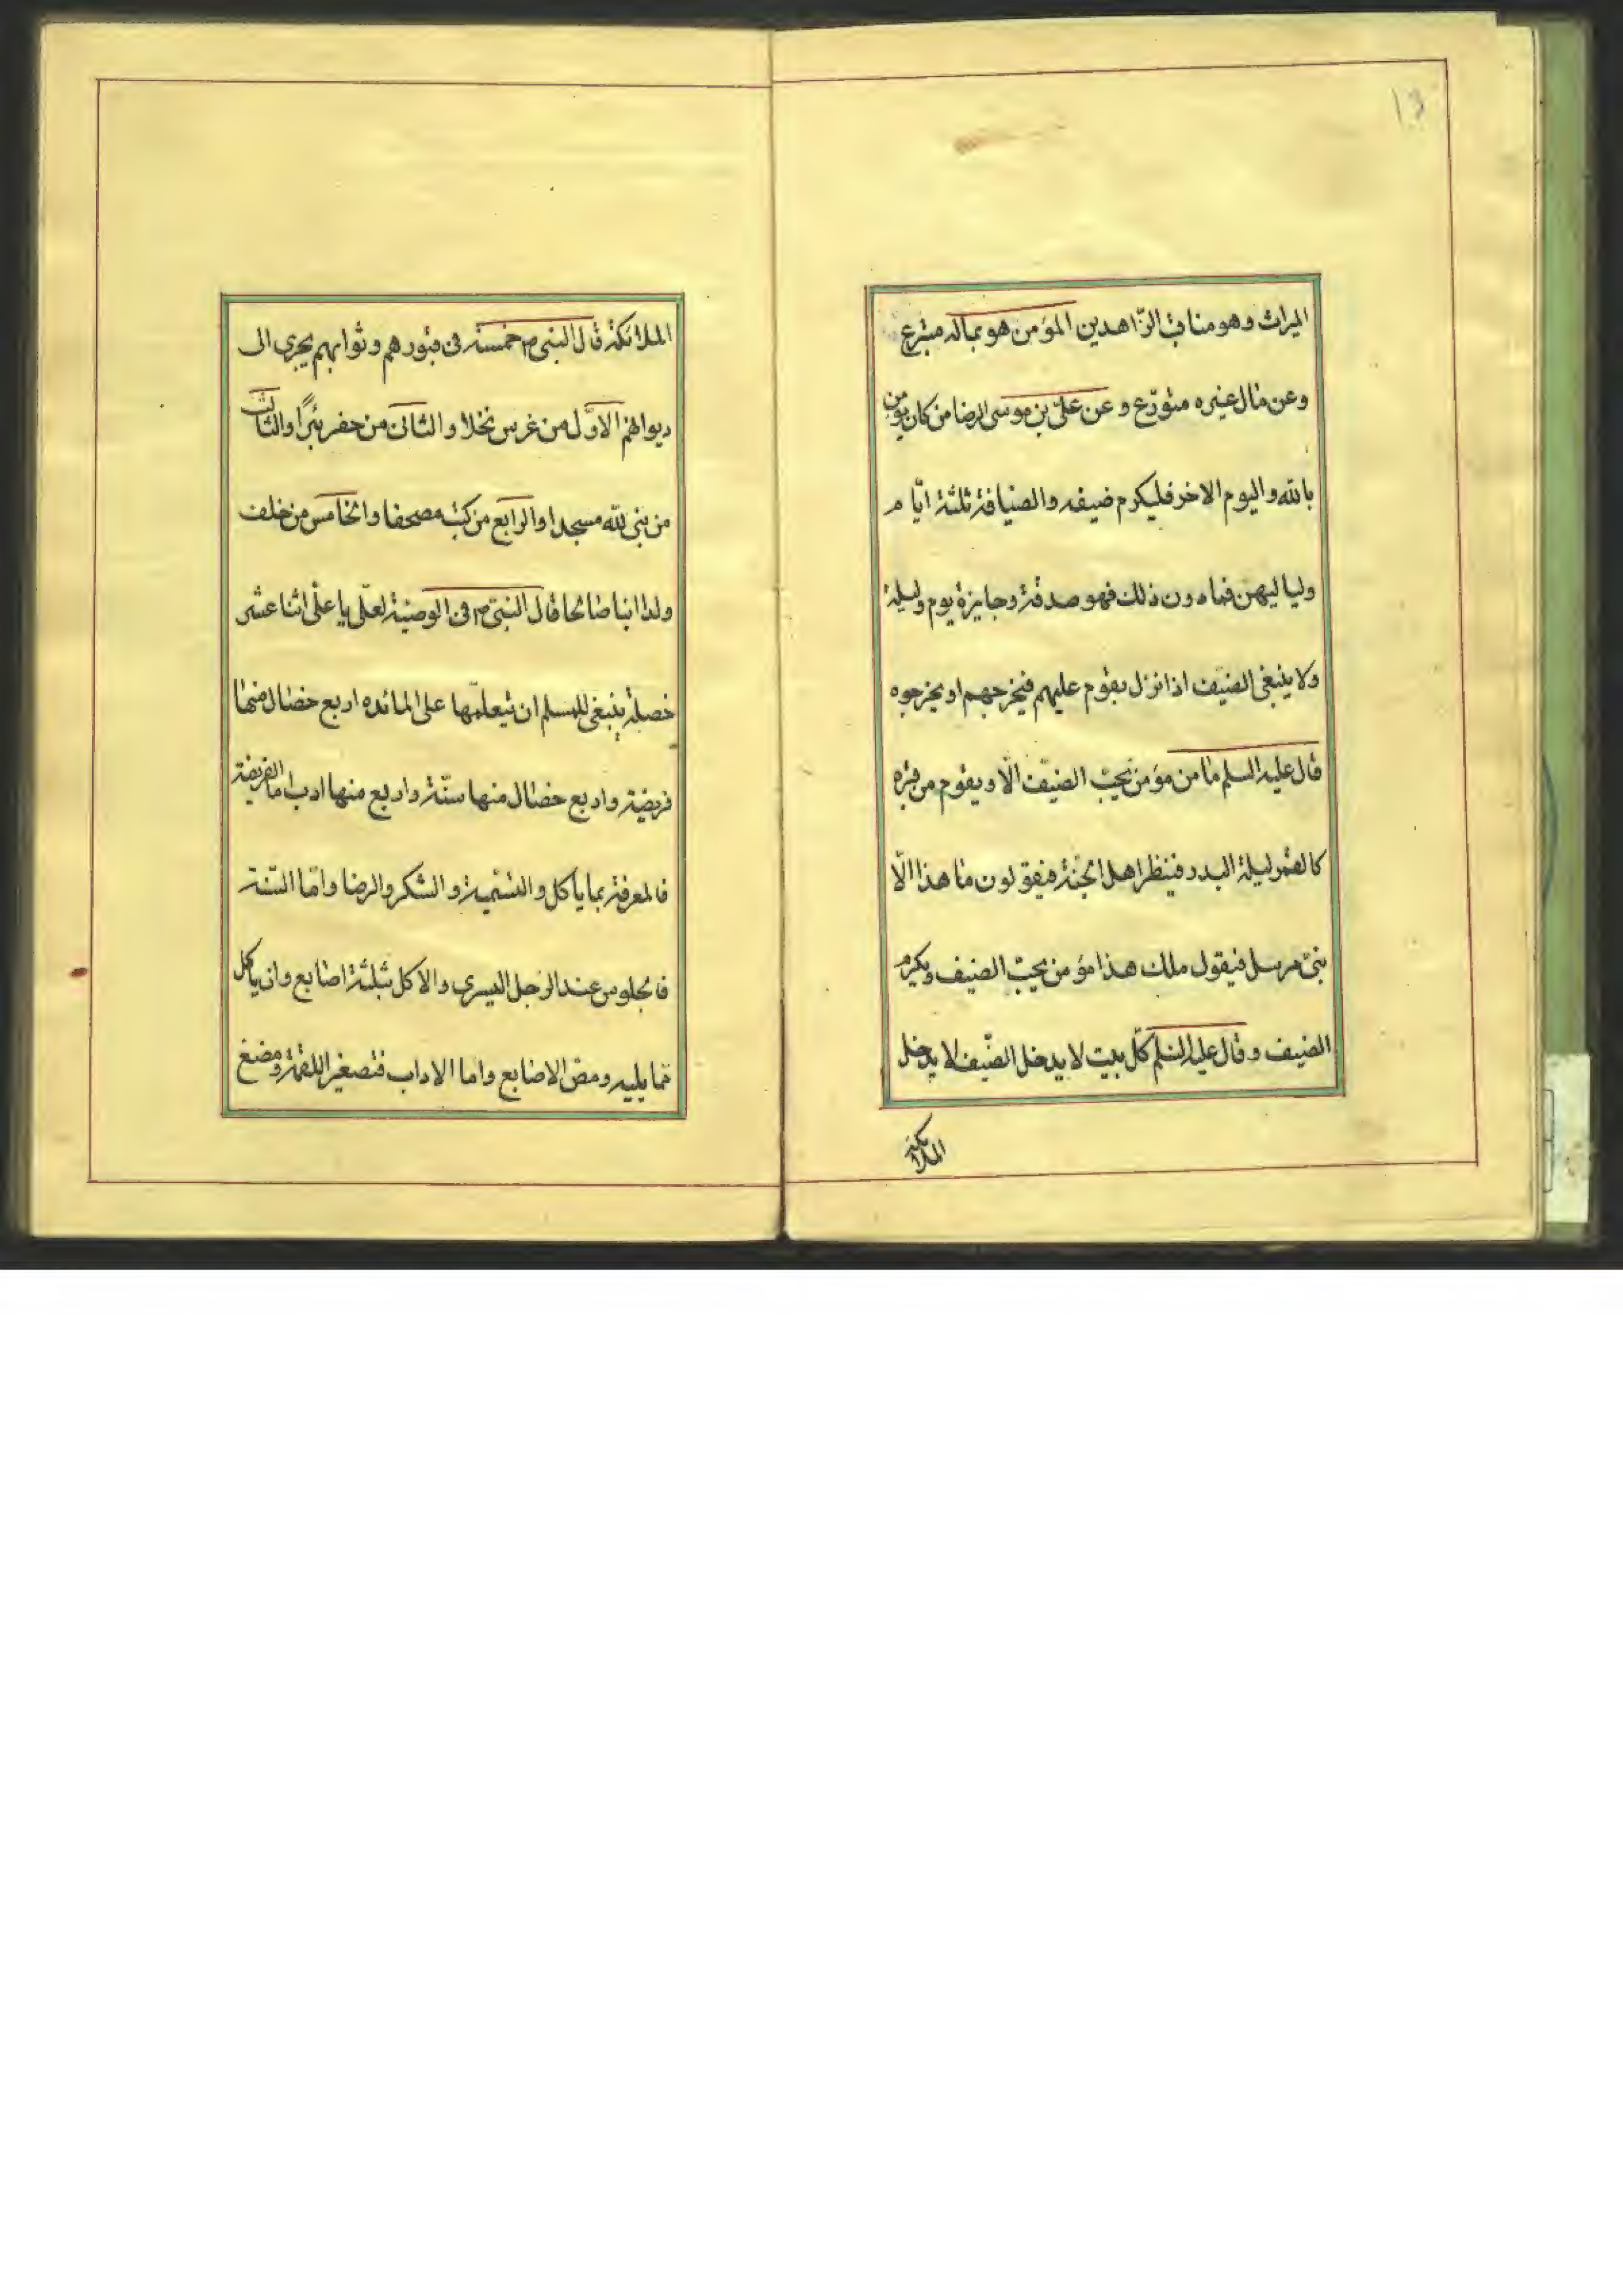 ١٣
الميراث وهو مناقب الزّاهدين المؤمن هو بماله متبرع
وعن مال غيره متورّع وعن علىّ بن موسى الرضا من كان يؤمن
بالله واليوم الاخر فليكرم ضيفه والضيافة ثلثة ايّام
ولياليهن فما دون ذلك فهو صدقة وجايزة يوم وليلة
ولا ينبغى الضيف اذا نزل بقوم عليهم فيخرجهم او يخرجوه
قال عليه السلم ما من مؤمن يحبّ الضيّف الّا ويقوم من قبره
كالقمر ليلة البدر فينظر اهل الجنّة فيقولون ما هذا الّا
نبىّ مرسل فيقول ملك هذا مؤمن يحبّ الضيف ويكرم
الضيف وقال عليه السلم كلّ بيت لا يدخل الضّيف لا يدخل
الملائكة
الملائكة قال النبى ص خمسة فى قبورهم وثوابهم يجرى الى
ديوانهم الاوّل من غرس نخلا والثانى من حفر بئرًا والثالث
من بنى لله مسجدا والرابع من كتب مصحفا والخامس من خلف
ولدا ابنا صالحا قال النبىّ ص فى الوصيّة لعلّى يا علّى اثنا عشر
خصلة ينبغى للمسلم ان يتعلّمها على المائده اربع خصال منها
فريضة واربع خصال منها سنّة واربع منها ادب اما الفريضة
فالمعرفة بما يأكل والتسّمية والشكر والرضا وامّا السّنة
فالجلوس عند الرجل اليسرى والاكل بثلثة اصابع وان ياكل
مما يليه ومصّ الاصابع واما الاداب فتصغير اللقمة ومضغ